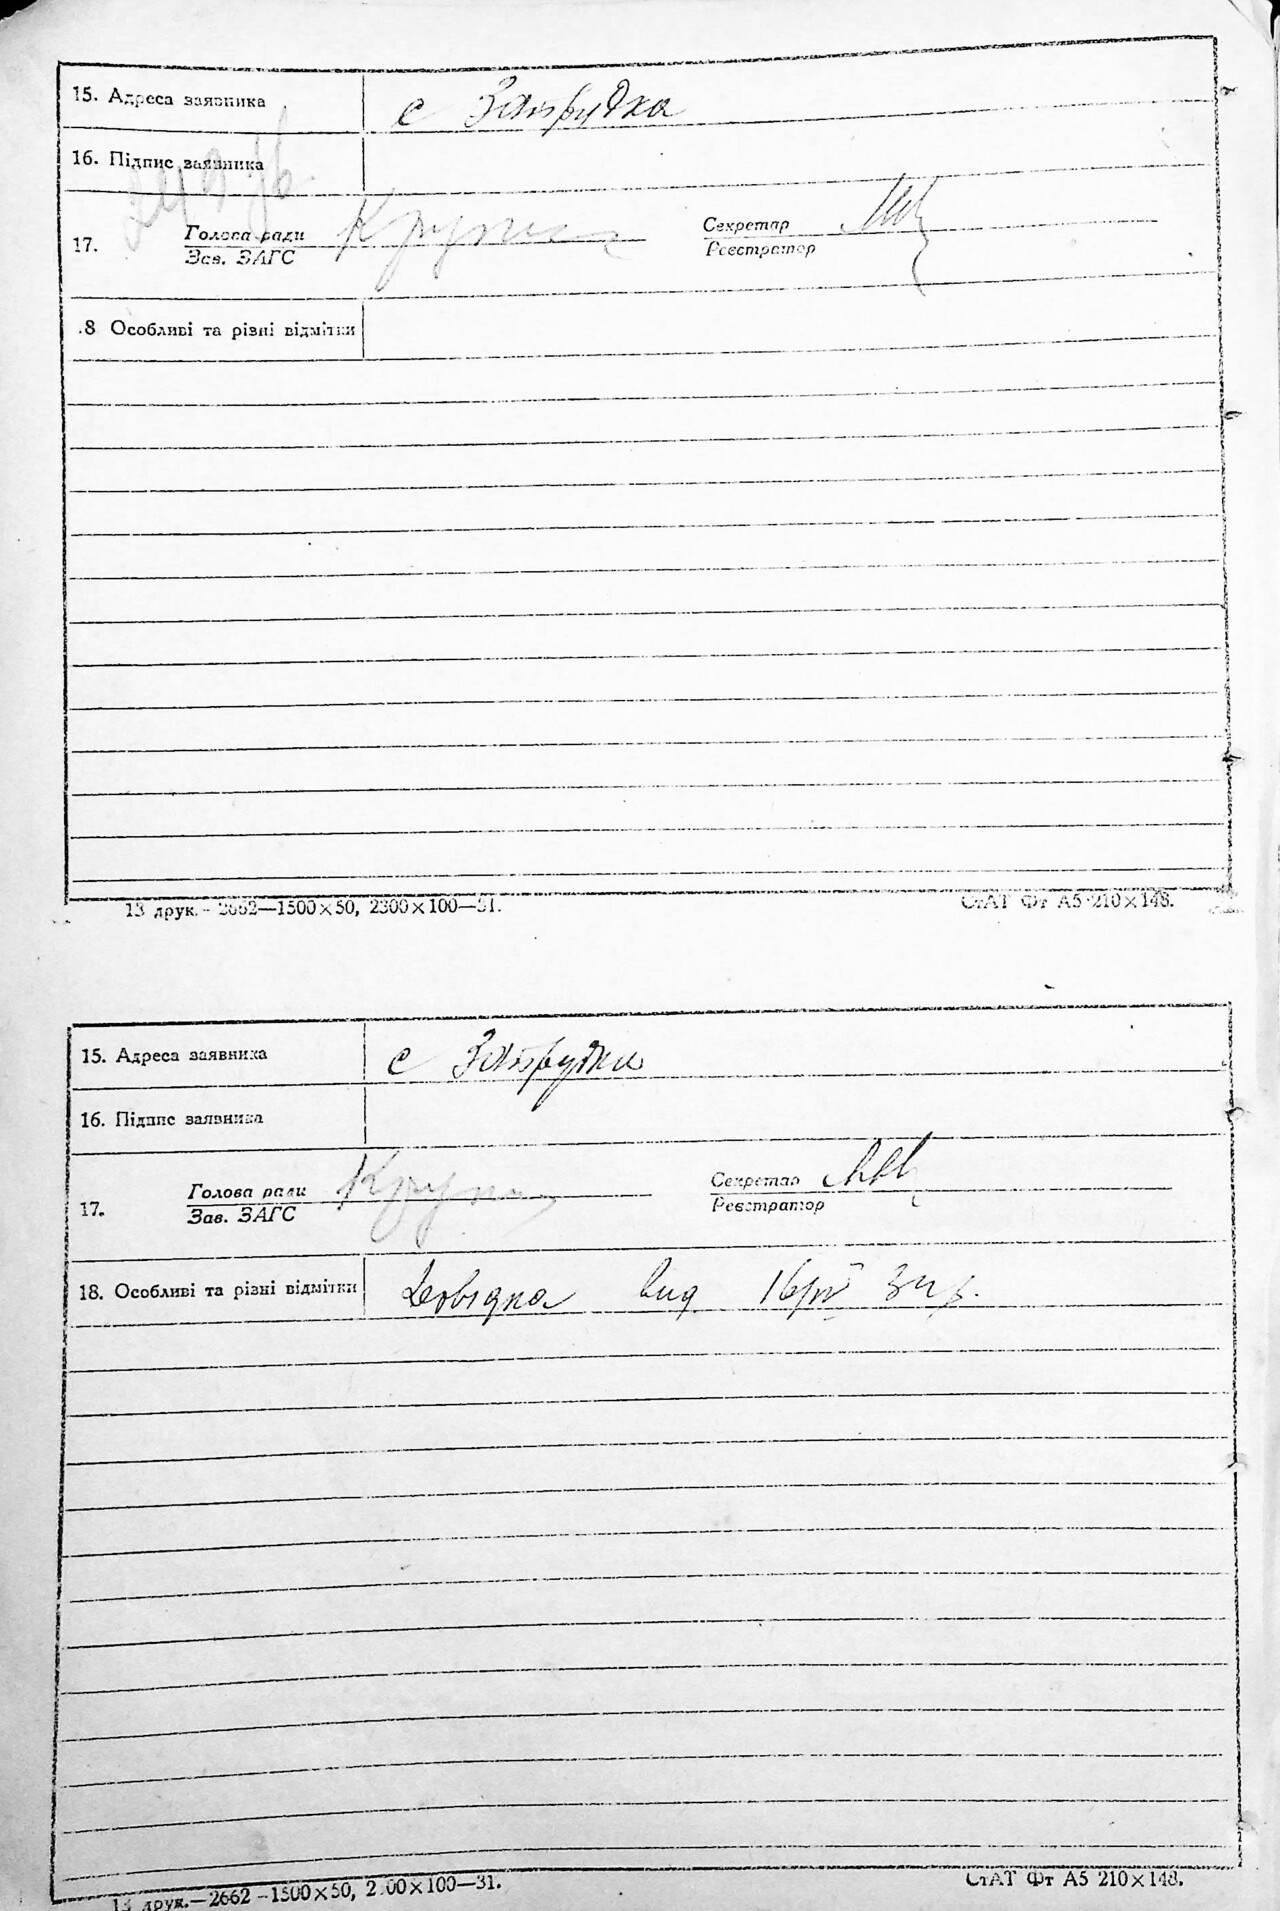 15. Адреса заявника с Запрудка
16. Підпис заявника
249 зв
17. Голова ради Секретар
Зав. ЗАГС Реєстратор
.8 Особливі та різні відмітки
13 друк.- 2662—1500×50, 2300×100—31.
СтАТ Фт А5·210×148.
15. Адреса заявника с Запрудка
16. Підпис заявника
17. Голова ради Секретар
Зав. ЗАГС Реєстратор
18. Особливі та різні відмітки Довідка вид 16/IV 34 р.
13 друк.—2662 -1500×50, 2 00×100—31.
СтАТ Фт А5 210×148.